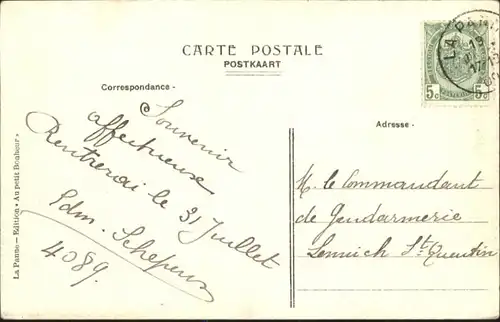 CARTE POSTALE
POSTKAART
Correspondance -
Adresse -
Souvenir
affectueuse
Rentrerai le 31 Juillet
Edm. Schepens
4089.
M. le Commandant
de Gendarmerie
Lennick St. Quentin
La Panne — Edition « Au petit Bonheur »
5c 5c
LA PANNE
19